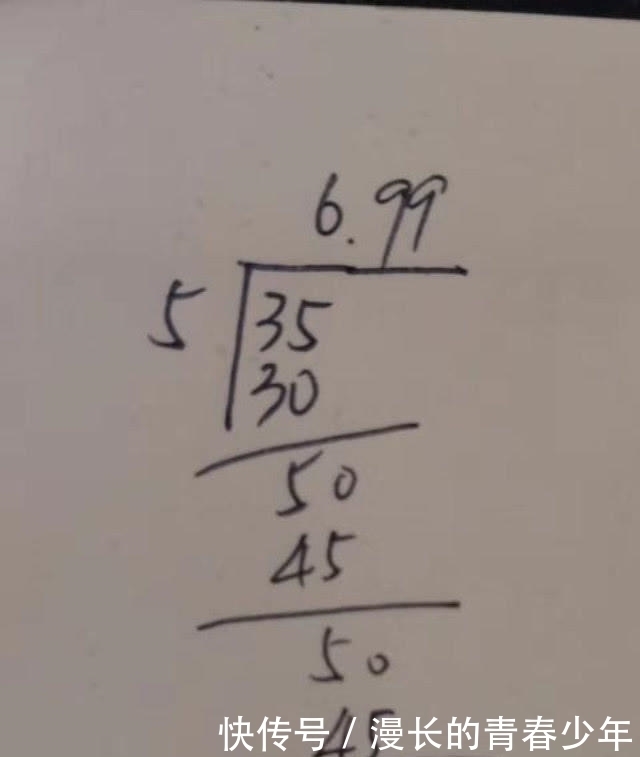 6.99
5 35
30
50
45
50
45
快传号 / 漫长的青春少年